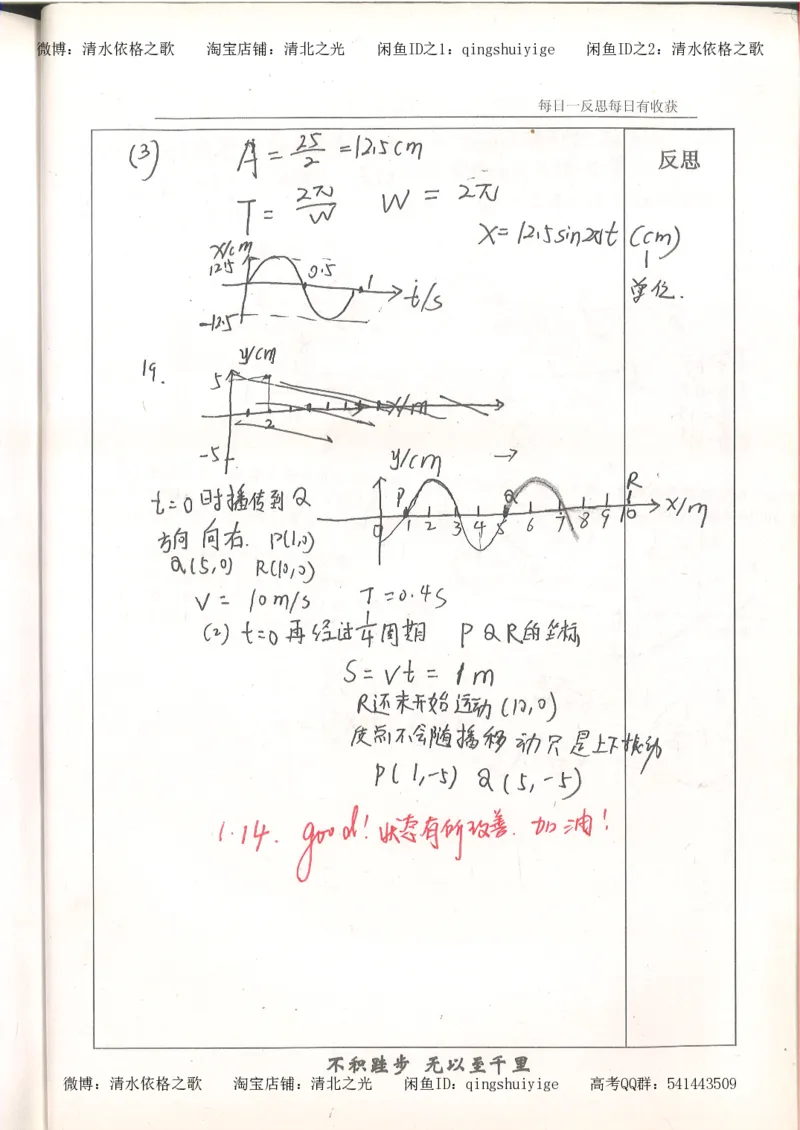 微博：清水依格之歌 淘宝店铺：清北之光 闲鱼ID之1：qingshuiyige 闲鱼ID之2：清水依格之歌
每日一反思每日有收获
反思
(3) A = 25/2 = 12.5cm
T = 2π/W W = 2π
X = 12.5sin2πt (cm)
单位.
X/cm
12.5
0.5 1 t/s
-12.5
19.
y/cm
5
2 X/m
-5
y/cm
P Q R
0 1 2 3 4 5 6 7 8 9 10 X/m
t=0时播传到Q
方向 向右. P(1,0)
Q(5,0) R(10,0)
V = 10m/s T=0.4s
(2) t=0再经过1/4周期 P Q R的坐标
S = Vt = 1m
R还未开始运动(10,0)
质点不会随播移动只是上下振动
P(1,-5) Q(5,-5)
1.14. good! 状态有所改善. 加油!
不积跬步 无以至千里
微博：清水依格之歌 淘宝店铺：清北之光 闲鱼ID：qingshuiyige 高考QQ群：541443509